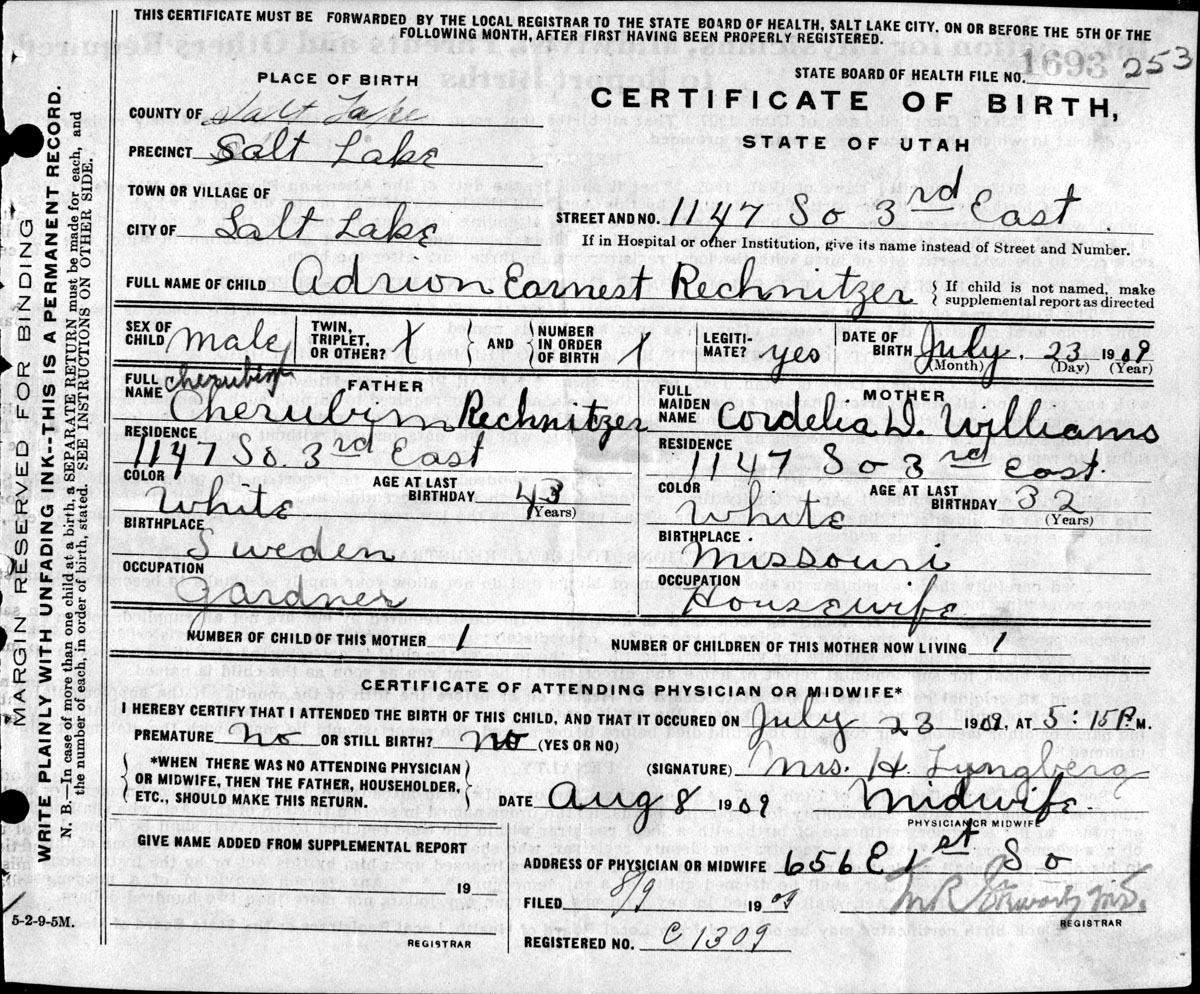 THIS CERTIFICATE MUST BE FORWARDED BY THE LOCAL REGISTRAR TO THE STATE BOARD OF HEALTH, SALT LAKE CITY, ON OR BEFORE THE 5TH OF THE
FOLLOWING MONTH, AFTER FIRST HAVING BEEN PROPERLY REGISTERED.
MARGIN RESERVED FOR BINDING
WRITE PLAINLY WITH UNFADING INK--THIS IS A PERMANENT RECORD.
N. B.—In case of more than one child at a birth, a SEPARATE RETURN must be made for each, and
the number of each, in order of birth, stated. SEE INSTRUCTIONS ON OTHER SIDE.
PLACE OF BIRTH
STATE BOARD OF HEALTH FILE NO. 1693 253
COUNTY OF Salt Lake
CERTIFICATE OF BIRTH,
PRECINCT Salt Lake
STATE OF UTAH
TOWN OR VILLAGE OF
CITY OF Salt Lake
STREET AND NO. 1147 So 3rd East
If in Hospital or other Institution, give its name instead of Street and Number.
FULL NAME OF CHILD Adrion Earnest Rechnitzer { If child is not named, make
supplemental report as directed
SEX OF CHILD male TWIN, TRIPLET, OR OTHER? AND NUMBER IN ORDER OF BIRTH LEGITIMATE? yes DATE OF BIRTH July 23 1909
(Month) (Day) (Year)
FATHER
FULL NAME Cherubim Cherubim Rechnitzer
MOTHER
FULL MAIDEN NAME Cordelia D. Williams
RESIDENCE 1147 So. 3rd East
RESIDENCE 1147 So 3rd East.
COLOR White AGE AT LAST BIRTHDAY 43 (Years)
COLOR White AGE AT LAST BIRTHDAY 32 (Years)
BIRTHPLACE Sweden
BIRTHPLACE Missouri
OCCUPATION Gardner
OCCUPATION Housewife
NUMBER OF CHILD OF THIS MOTHER 1
NUMBER OF CHILDREN OF THIS MOTHER NOW LIVING 1
CERTIFICATE OF ATTENDING PHYSICIAN OR MIDWIFE*
I HEREBY CERTIFY THAT I ATTENDED THE BIRTH OF THIS CHILD, AND THAT IT OCCURED ON July 23 1909, AT 5:15 P. M.
PREMATURE no OR STILL BIRTH? no (YES OR NO)
*WHEN THERE WAS NO ATTENDING PHYSICIAN
OR MIDWIFE, THEN THE FATHER, HOUSEHOLDER,
ETC., SHOULD MAKE THIS RETURN.
(SIGNATURE) Mrs. H. Lyngberg
DATE Aug 8 1909 Midwife.
PHYSICIAN OR MIDWIFE
GIVE NAME ADDED FROM SUPPLEMENTAL REPORT
19
REGISTRAR
ADDRESS OF PHYSICIAN OR MIDWIFE 656 E 1st So
FILED 8/9 1909
REGISTRAR
REGISTERED NO. C 1309
5-2-9-5M.